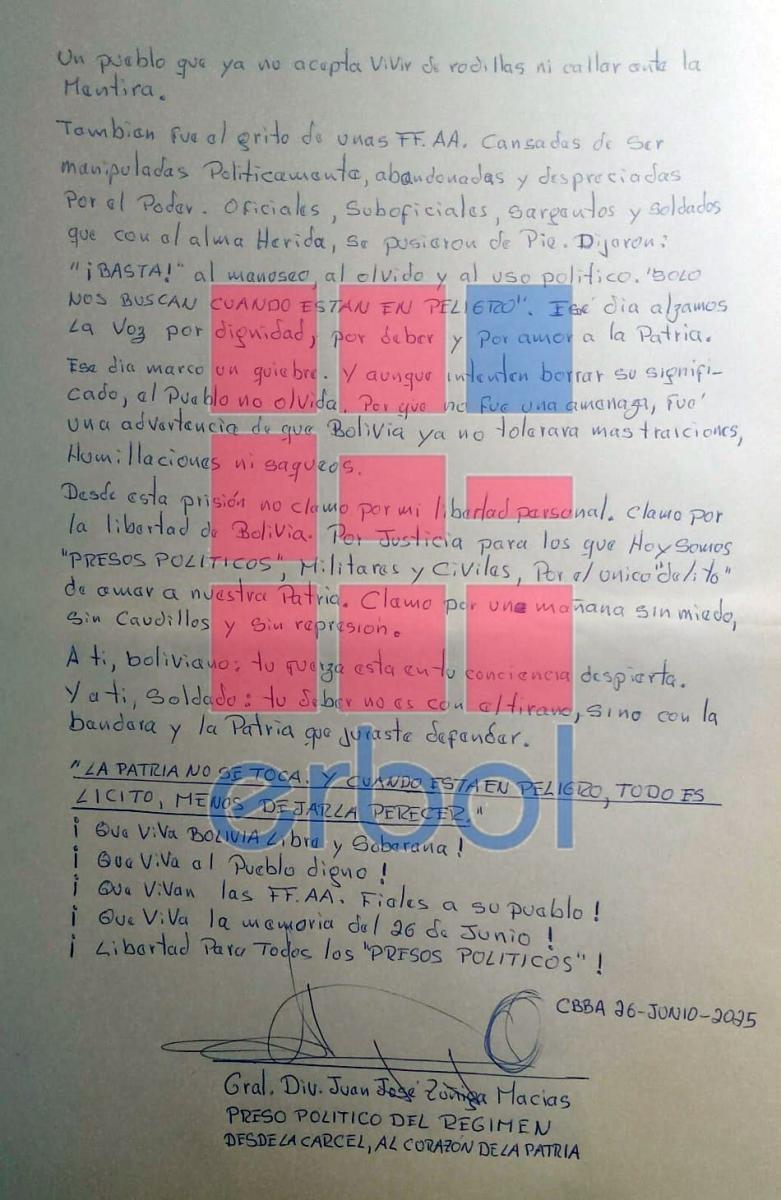 Un pueblo que ya no acepta ViVir de rodillas ni callar ante la
Mentira.
Tambien fue el grito de unas FF.AA. Cansadas de Ser
manipuladas Politicamente, abandonadas y despreciadas
Por el Poder. Oficiales, Suboficiales, Sargentos y Soldados
que con el alma Herida, se pusieron de Pie. Dijeron:
"¡BASTA!" al manoseo, al olvido y al uso politico. "SOLO
NOS BUSCAN CUANDO ESTAN EN PELIGRO". Ese dia alzamos
La Voz por dignidad, por deber y Por amor a la Patria.
Ese dia marco un quiebre. Y aunque intenten borrar su signifi-
cado, el Pueblo no olvida. Por que no fue una amenaza, fue
una advertencia de que Bolivia ya no tolerara mas traiciones,
Humillaciones ni saqueos.
Desde esta prisión no clamo por mi libertad personal. Clamo por
la libertad de Bolivia. Por Justicia para los que Hoy Somos
"PRESOS POLITICOS", Militares y Civiles, Por el unico "delito"
de amar a nuestra Patria. Clamo por una mañana sin miedo,
Sin Caudillos y Sin represión.
A ti, boliviano: tu fuerza esta en tu conciencia despierta.
Y a ti, Soldado: tu deber no es con el tirano, Sino con la
bandera y la Patria que juraste defender.
"LA PATRIA NO SE TOCA. Y CUANDO ESTA EN PELIGRO, TODO ES
LICITO, MENOS DEJARLA PERECER."
¡ Que ViVa BOLIVIA Libre y Soberana !
¡ Que ViVa el Pueblo digno !
¡ Que ViVan las FF.AA. Fieles a su pueblo !
¡ Que ViVa la memoria del 26 de Junio !
¡ Libertad Para Todos los "PRESOS POLITICOS" !
CBBA 26-JUNIO-2025
Gral. Div. Juan José Zúñiga Macias
PRESO POLITICO DEL REGIMEN
DESDE LA CARCEL, AL CORAZÓN DE LA PATRIA
erbol